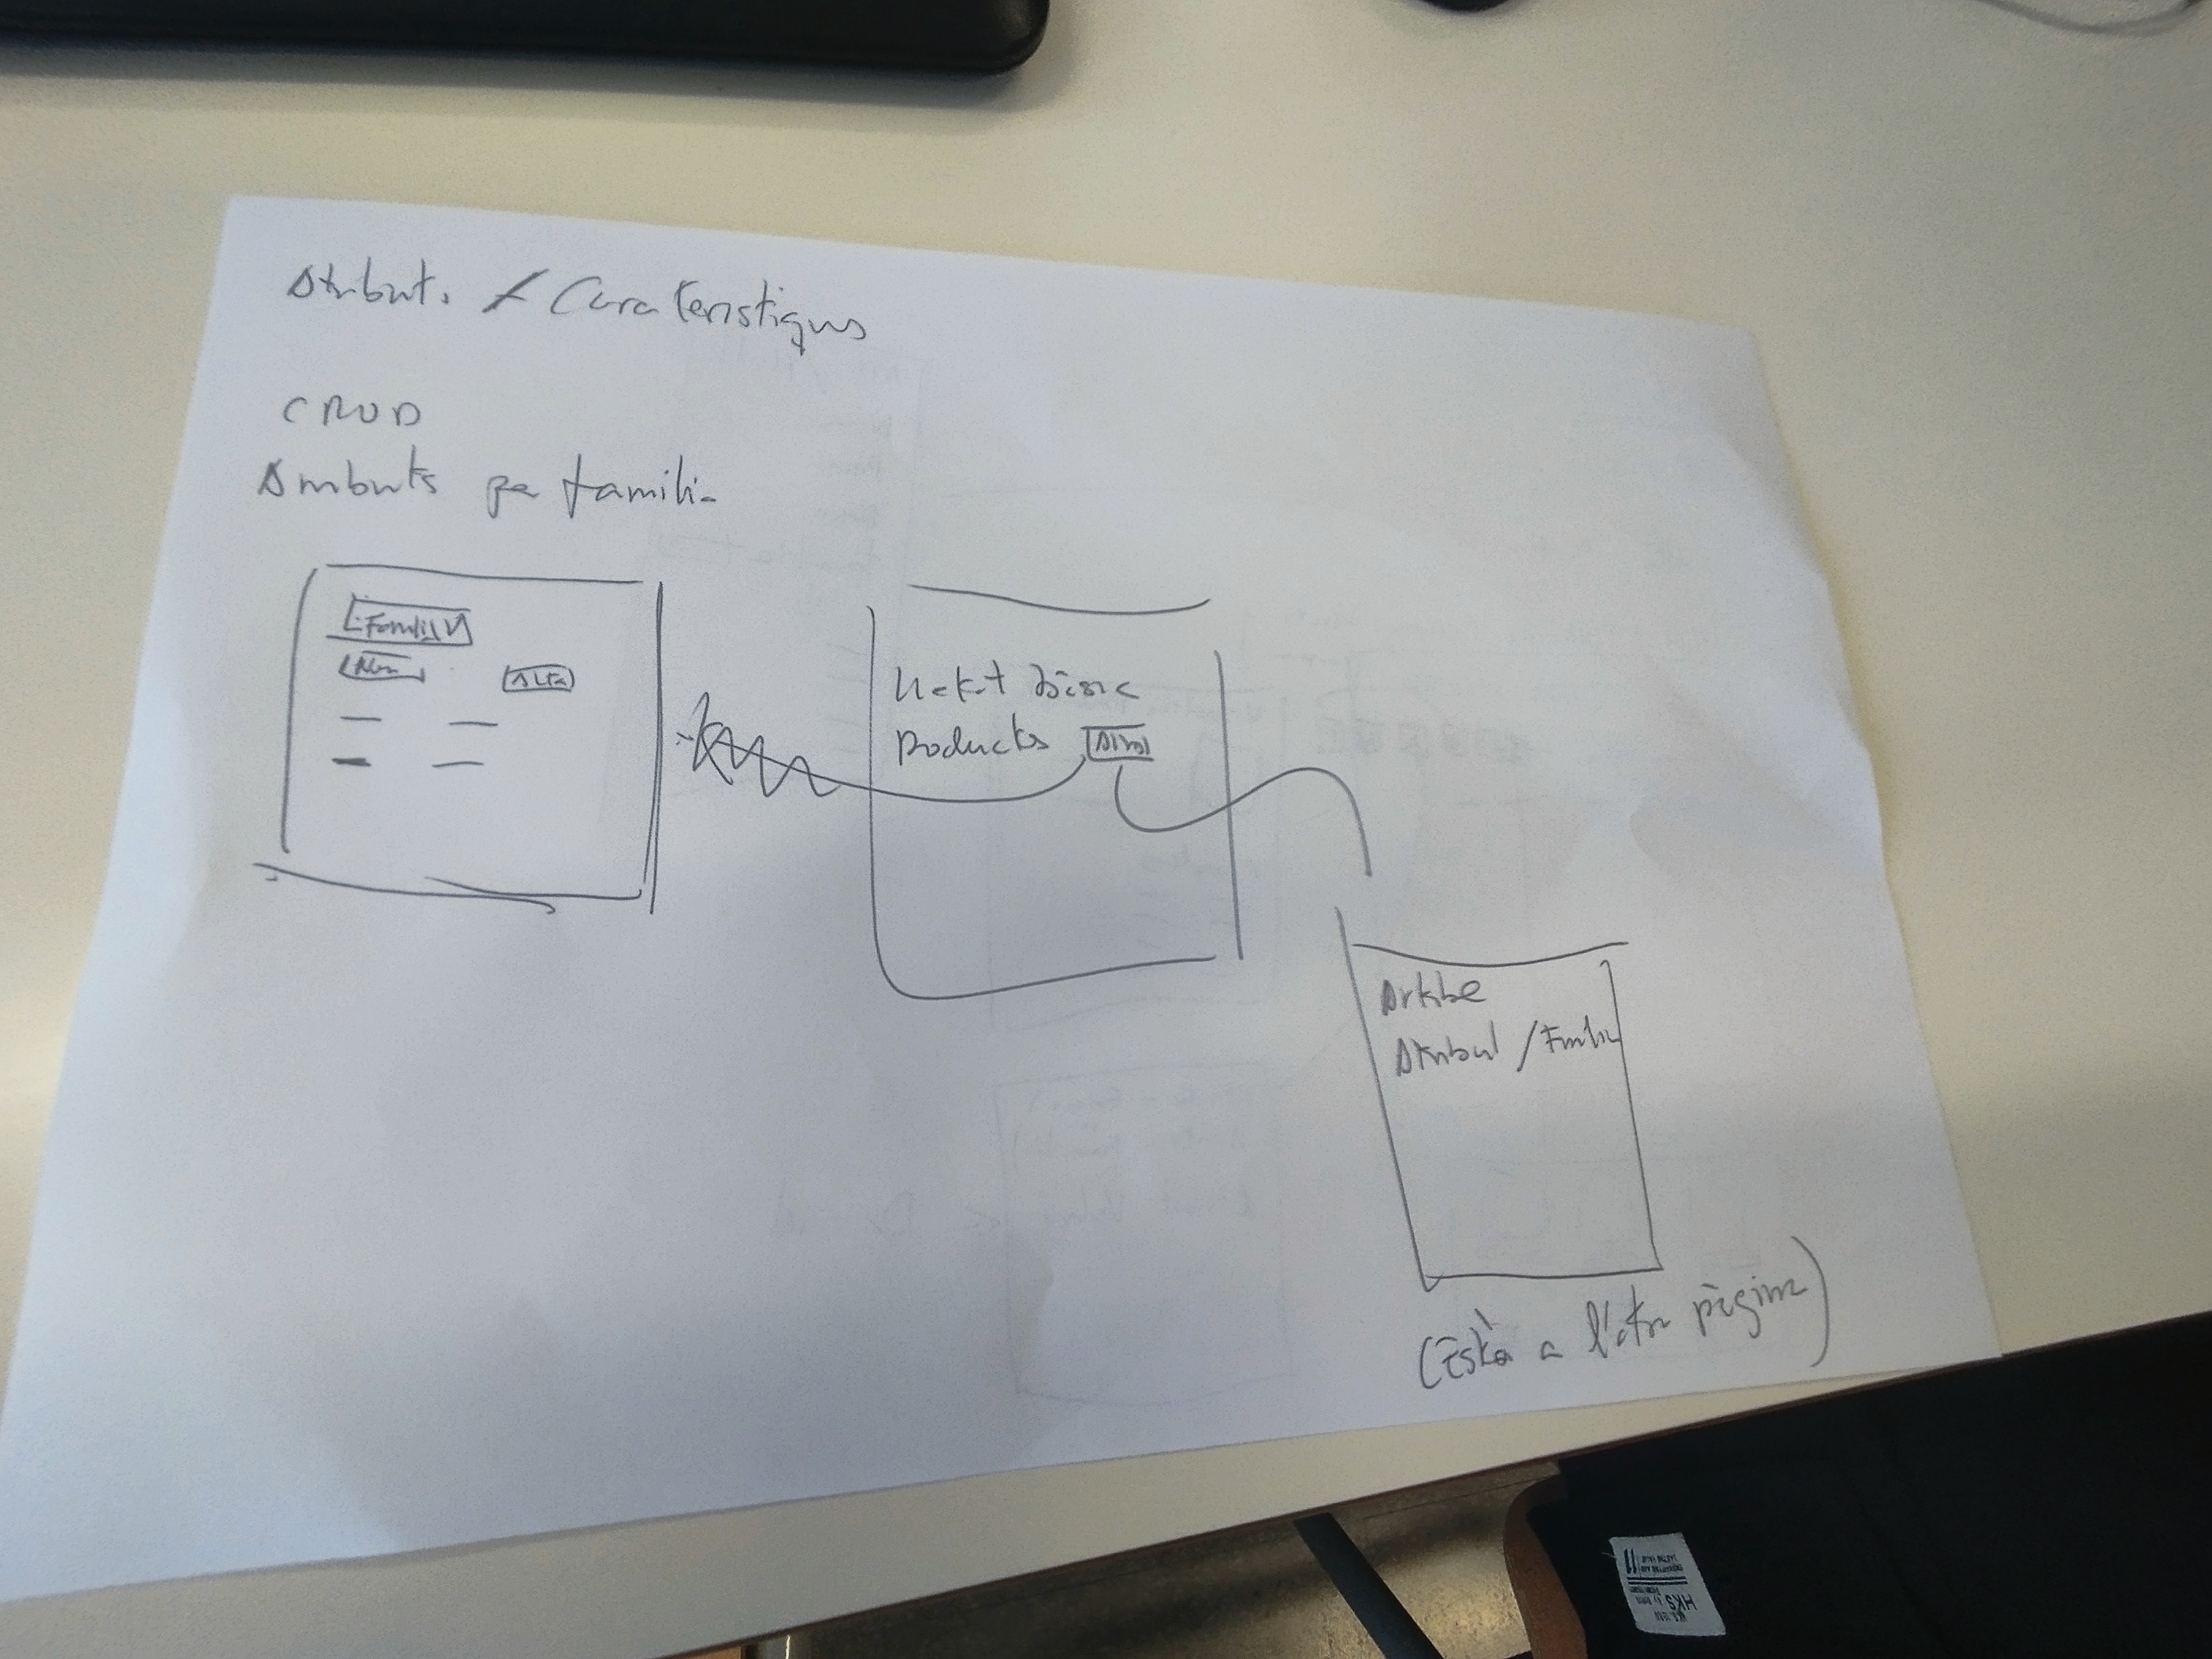 Atribut. / Caracteristiques
CRUD
Atributs per familia
Familia
Nom
ALTA
Market bàsic
Productes
Atrib
Article
Atribut / Familia
(Està a l'altra pàgina)
HKS
11